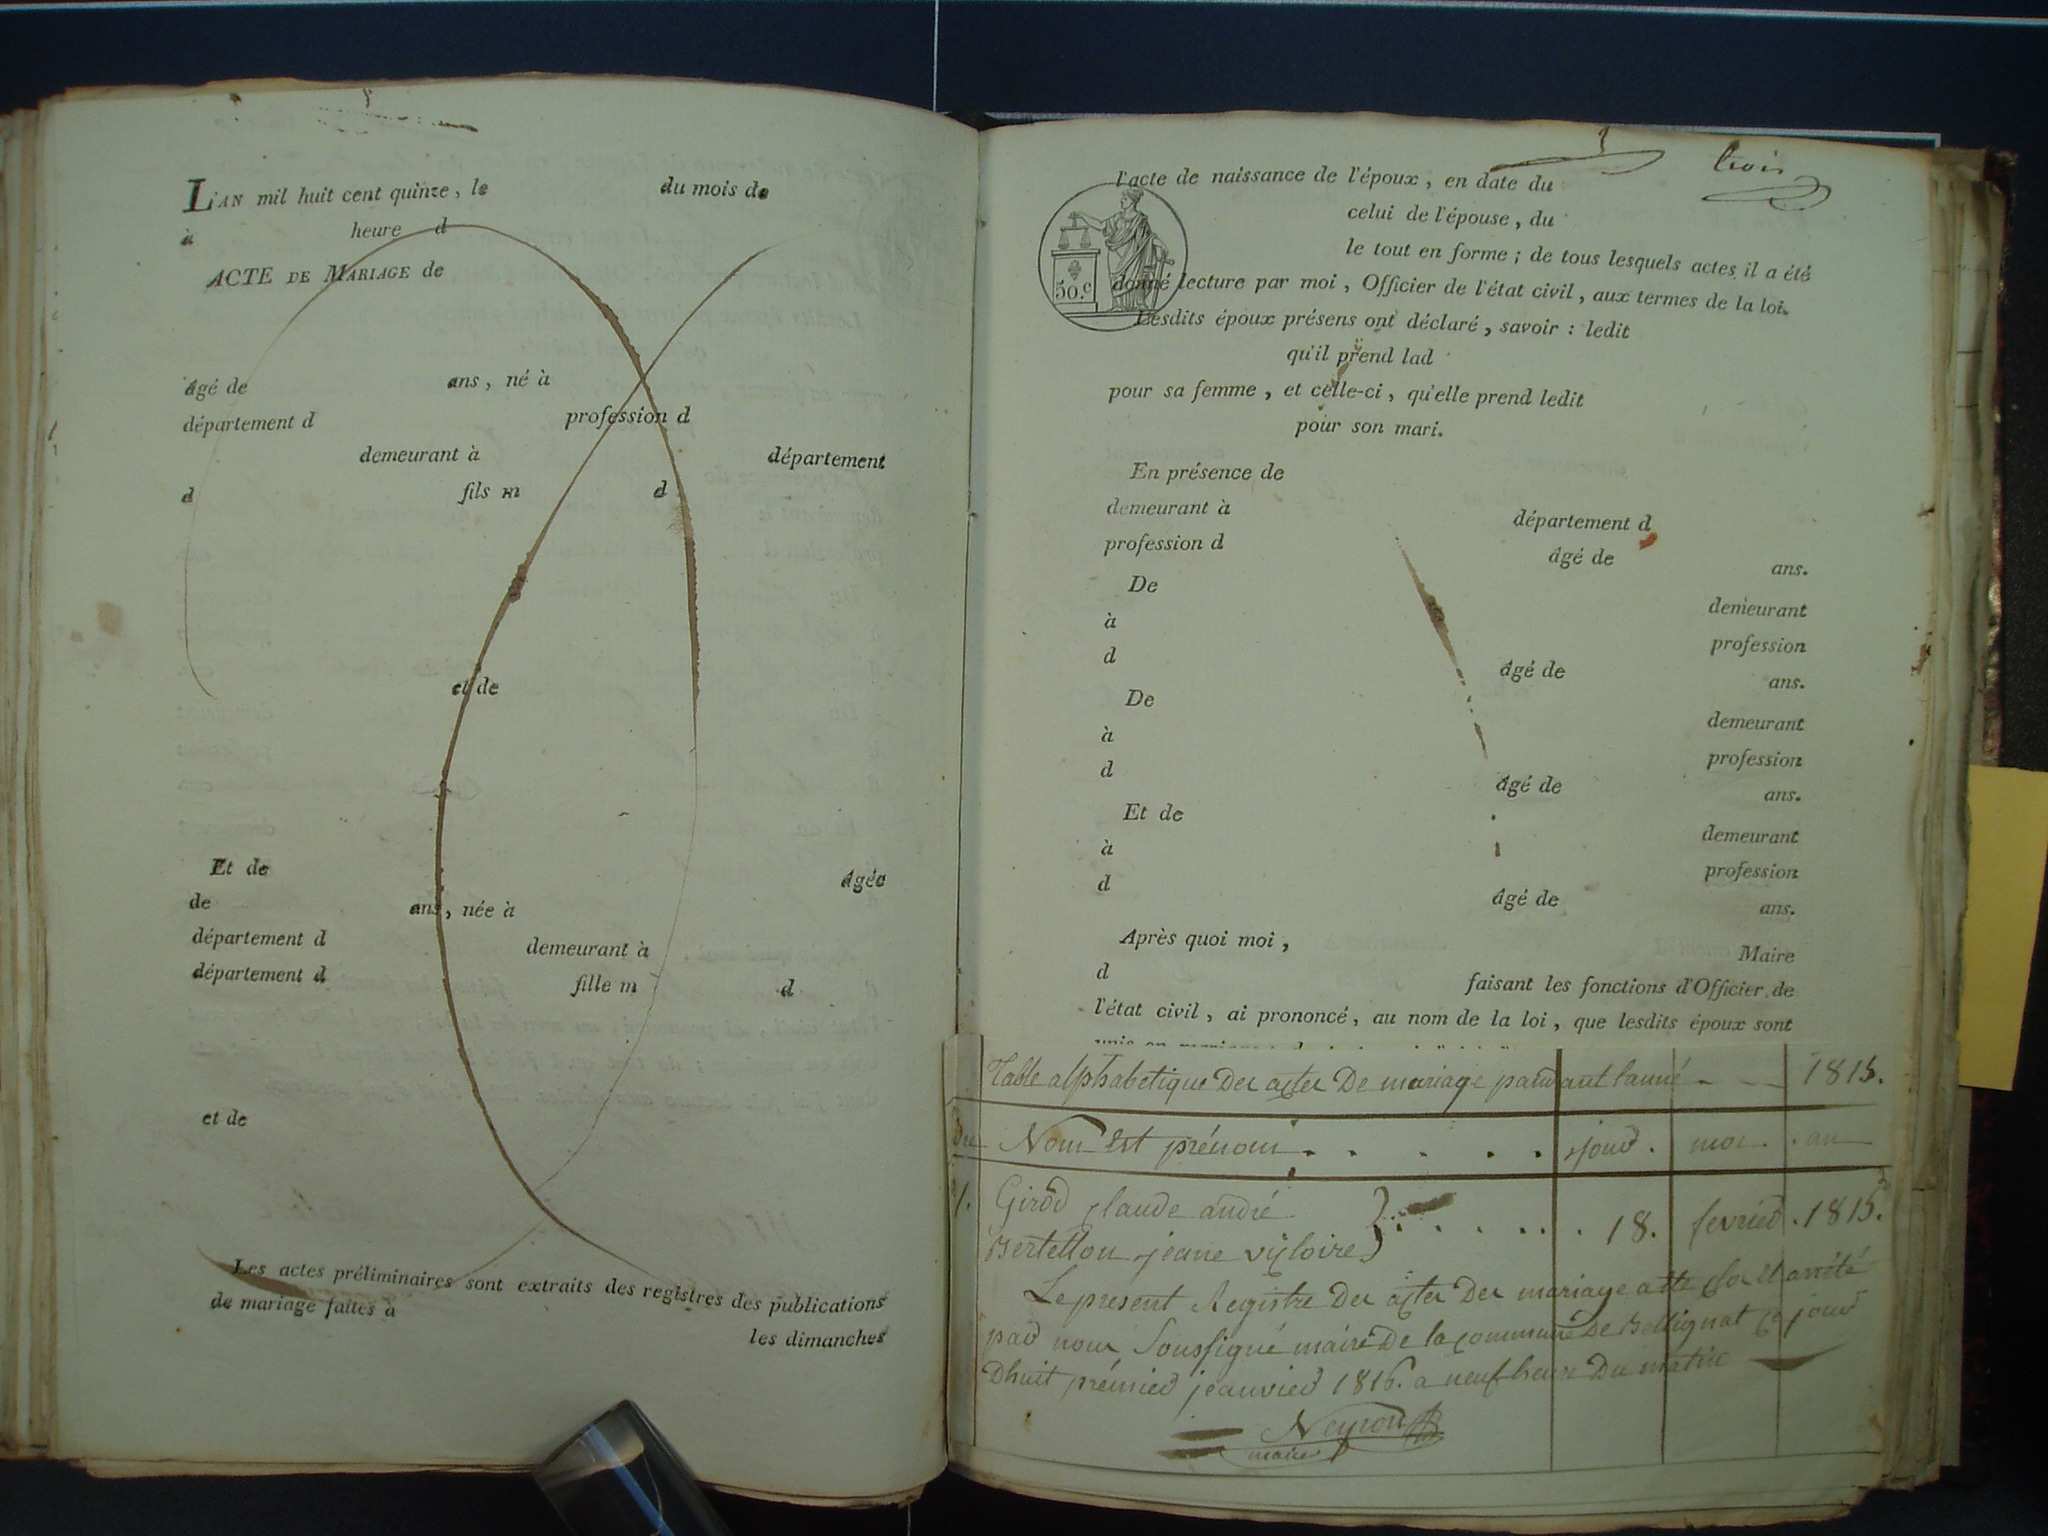 L'AN mil huit cent quinze, le du mois de
à heure d
ACTE DE MARIAGE de
âgé de ans, né à
département d profession d
demeurant à département
d fils m d
et de
Et de âgée
de ans, née à
département d demeurant à
département d fille m d
et de
Les actes préliminaires sont extraits des registres des publications
de mariage faites à
les dimanches
trois
l'acte de naissance de l'époux, en date du
celui de l'épouse, du
le tout en forme; de tous lesquels actes il a été
donné lecture par moi, Officier de l'état civil, aux termes de la loi.
50.c
Lesdits époux présens ont déclaré, savoir : ledit
qu'il prend lad
pour sa femme, et celle-ci, qu'elle prend ledit
pour son mari.
En présence de
demeurant à département d
profession d âgé de ans.
De demeurant
à profession
d âgé de ans.
De demeurant
à profession
d âgé de ans.
Et de demeurant
à profession
d âgé de ans.
Après quoi moi, Maire
d faisant les fonctions d'Officier de
l'état civil, ai prononcé, au nom de la loi, que lesdits époux sont
Table alphabetique Des actes De mariage pandant lanné 1815.
Nom Est prénom jour. moi. an
1. Girod claude andré
Bertellon jeane victoire 18. fevrier 1815.
Le present Registre Des actes Des mariage atte clos Et arrêté
par nous Soussigné maire De la commune De Bellignat ce jour
Dhuit prémier jeanvier 1816. a neuf heure Du matin
Neyron
maire